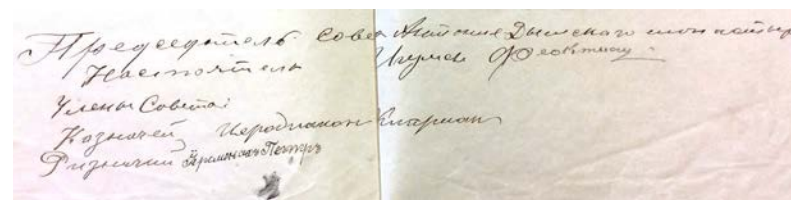 Председатель совет Антоние Дымскаго монастыр
Настоятель Игумен Феоктист
Члены Совета:
Казначей Иеродиакон Иларион
Ризничий Иеромонах Петръ